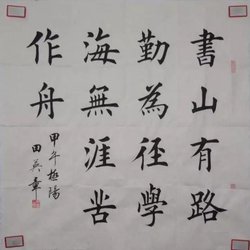 書山有路
勤為徑學
海無涯苦
作舟
甲午蕤陽
田英章